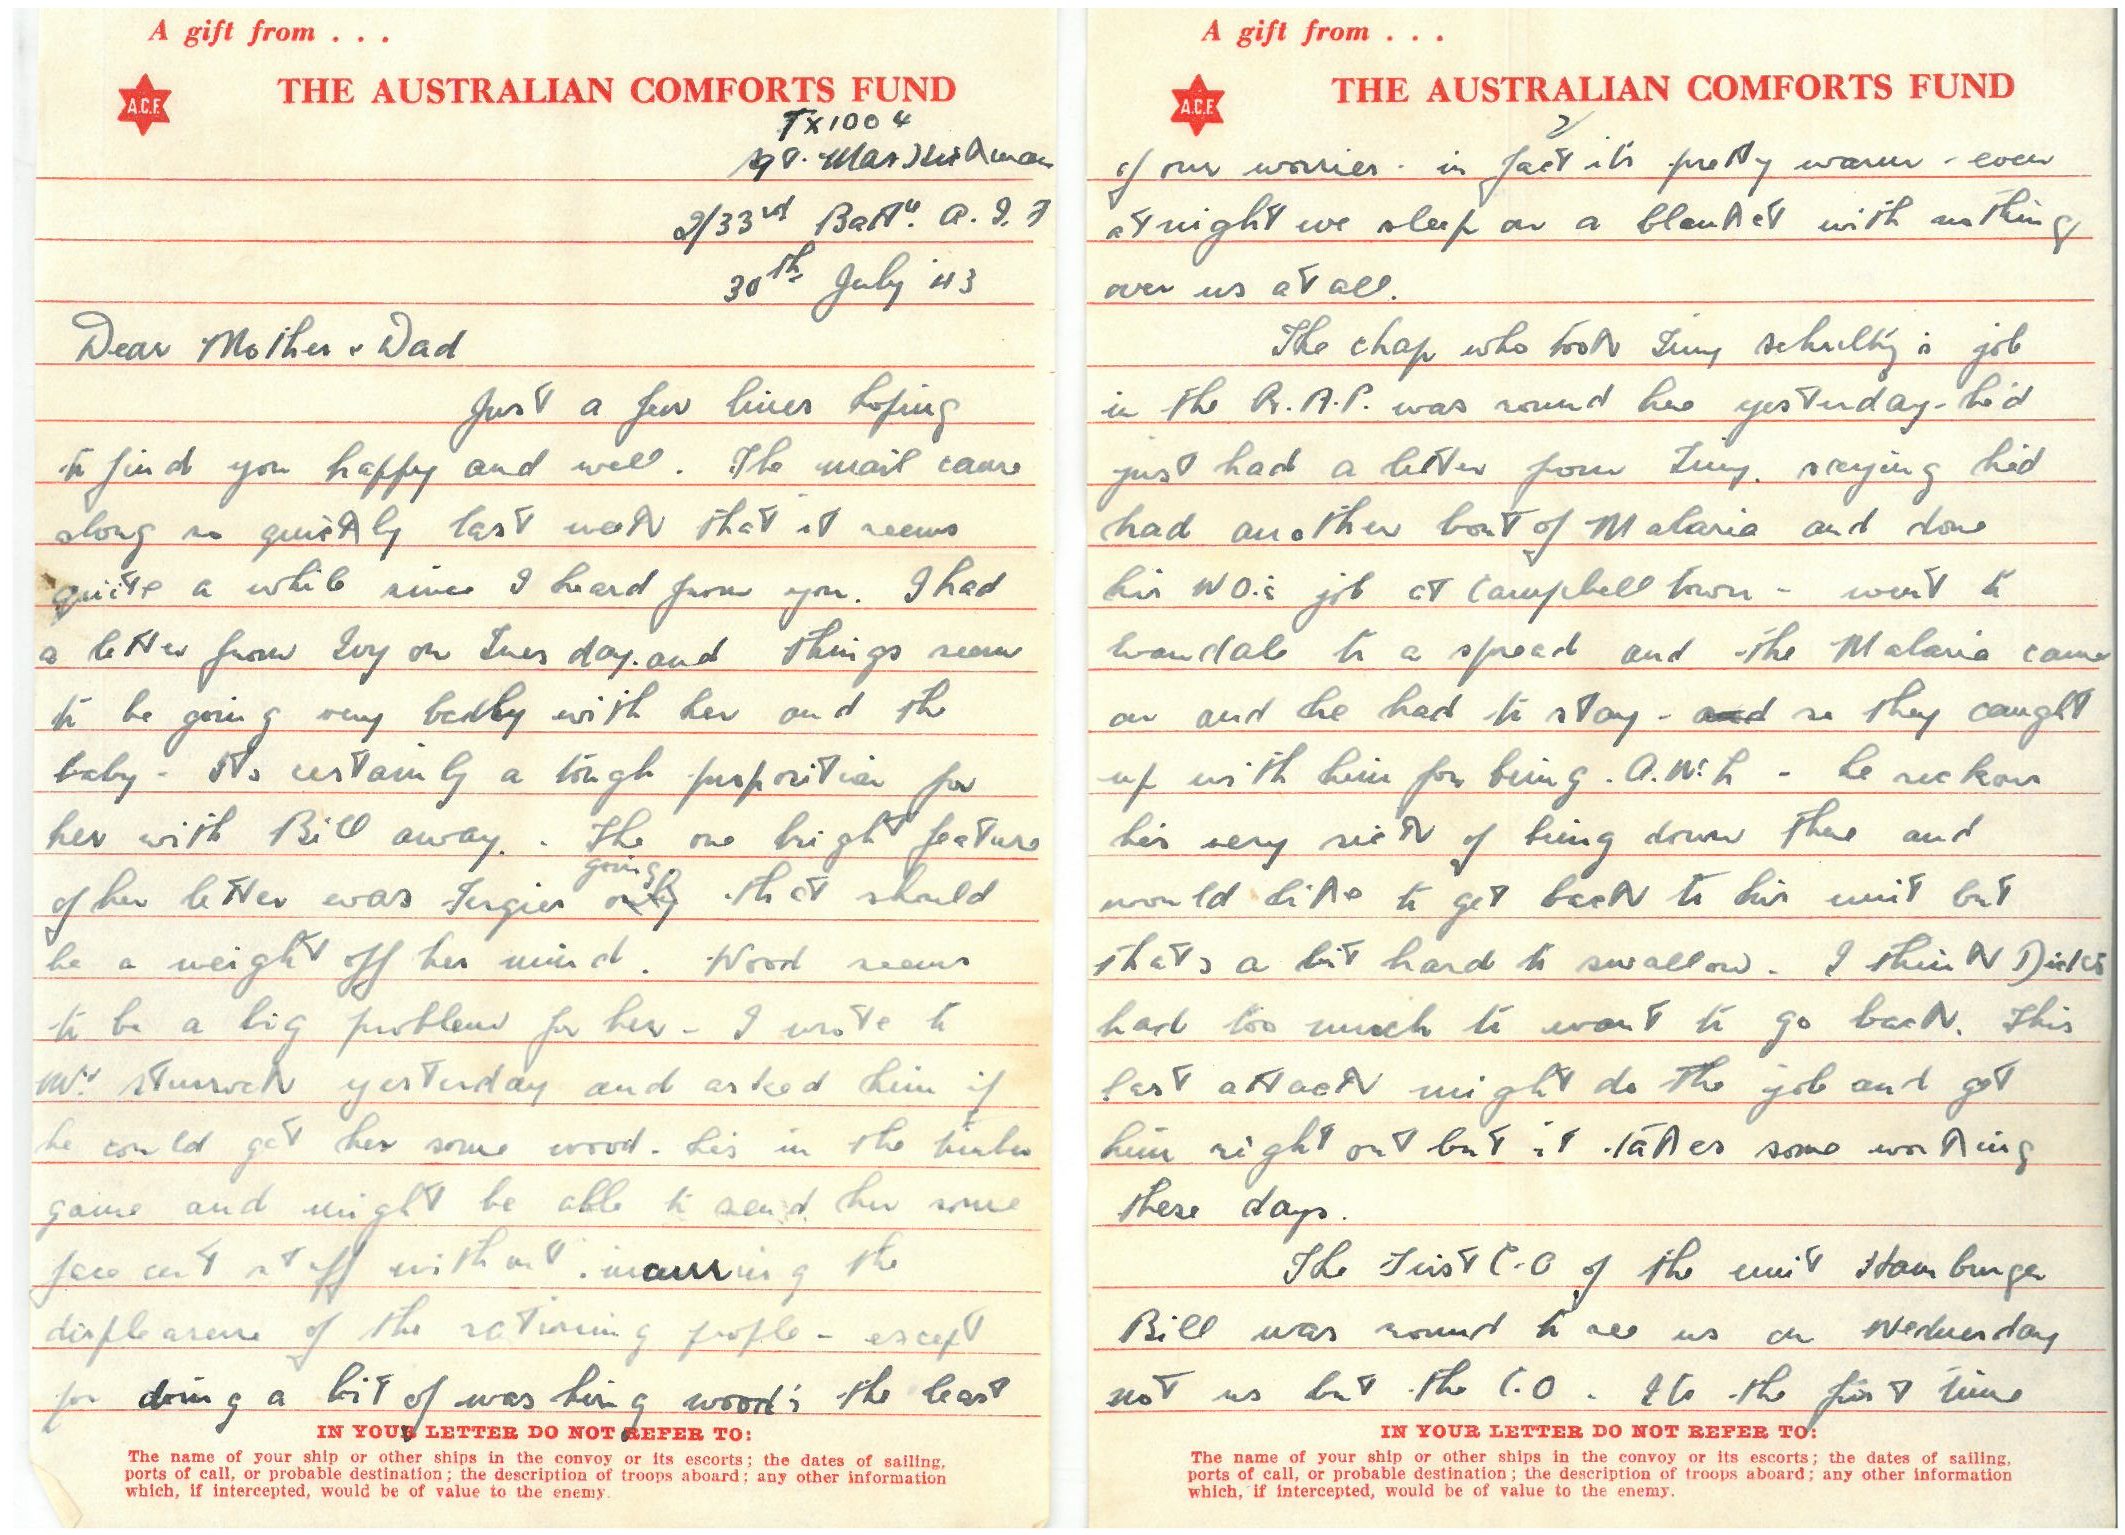 A gift from . . .
THE AUSTRALIAN COMFORTS FUND
A.C.F.
TX1004
Sgt. Max Hickman
2/33rd Battn. A.I.F
30th July '43
Dear Mother & Dad
Just a few lines hoping
to find you happy and well. The mail came
along so quickly last week that it seems
quite a while since I heard from you. I had
a letter from Ivy on Tuesday. and things seem
to be going very badly with her and the
baby - its certainly a tough proposition for
her with Bill away. - The one bright feature
going
of her letter was Fergies that should
be a weight off her mind. Wood seems
to be a big problem for her - I wrote to
Mr. Sturrock yesterday and asked him if
he could get her some wood - he's in the timber
game and might be able to send her some
face cut stuff without incurring the
displeasure of the rationing people - except
for doing a bit of washing wood's the least
IN YOUR LETTER DO NOT REFER TO:
The name of your ship or other ships in the convoy or its escorts; the dates of sailing,
ports of call, or probable destination; the description of troops aboard; any other information
which, if intercepted, would be of value to the enemy.
A gift from . . .
THE AUSTRALIAN COMFORTS FUND
A.C.F.
2/
of our worries - in fact its pretty warm - even
at night we sleep on a blanket with nothing
over us at all.
The chap who took Tiny Schultz's job
in the R.A.P. was round here yesterday - he'd
just had a letter from Tiny. saying he'd
had another bout of Malaria and done
his W.O.s job at Campbell Town - went to
to a spread and the Malaria came
on and he had to stay - and so they caught
up with him for being. A.W.L - he reckons
he's very sick of being down there and
would like to get back to his unit but
thats a bit hard to swallow. I think Dick's
had too much to want to go back. This
last attack might do the job and get
him right out but it takes some working
these days.
The First C.O of the unit Hamburger
Bill was round to see us on Wednesday
not us but the C.O. Its the first time
IN YOUR LETTER DO NOT REFER TO:
The name of your ship or other ships in the convoy or its escorts; the dates of sailing,
ports of call, or probable destination; the description of troops aboard; any other information
which, if intercepted, would be of value to the enemy.